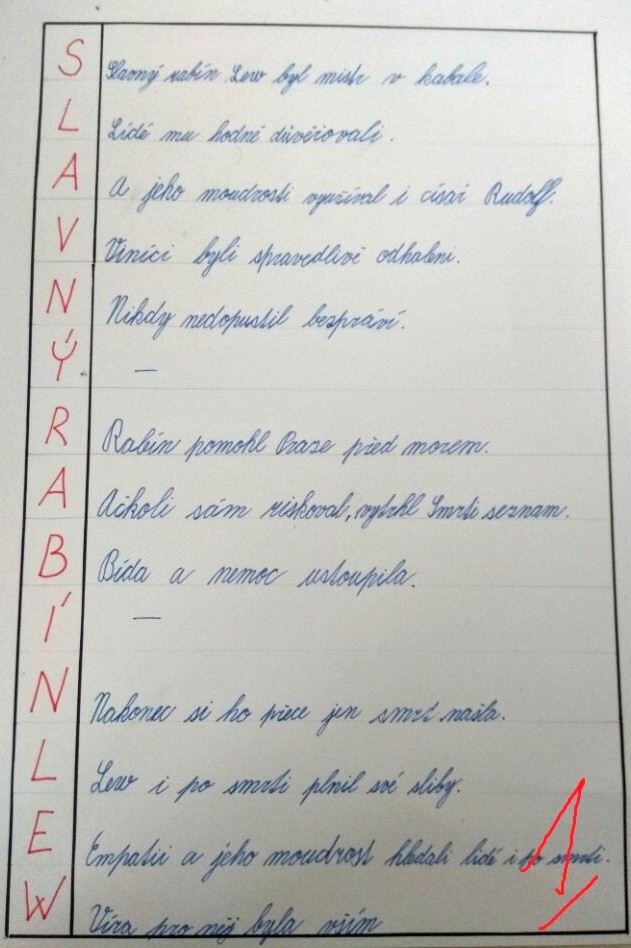 S Slavný rabín Lew byl mistr v kabale.
L Lidé mu hodně důvěřovali.
A A jeho moudrosti využíval i císař Rudolf.
V Viníci byli spravedlivě odhaleni.
N Nikdy nedopustil bezpráví.
Ý —
R Rabín pomohl Praze před morem.
A Ačkoli sám riskoval, vytrhl Smrti seznam.
B Bída a nemoc ustoupila.
Í —
N Nakonec si ho přece jen smrt našla.
L Lew i po smrti plnil své sliby.
E Empatii a jeho moudrost hledali lidé i po smrti.
W Víra pro něj byla vším
1